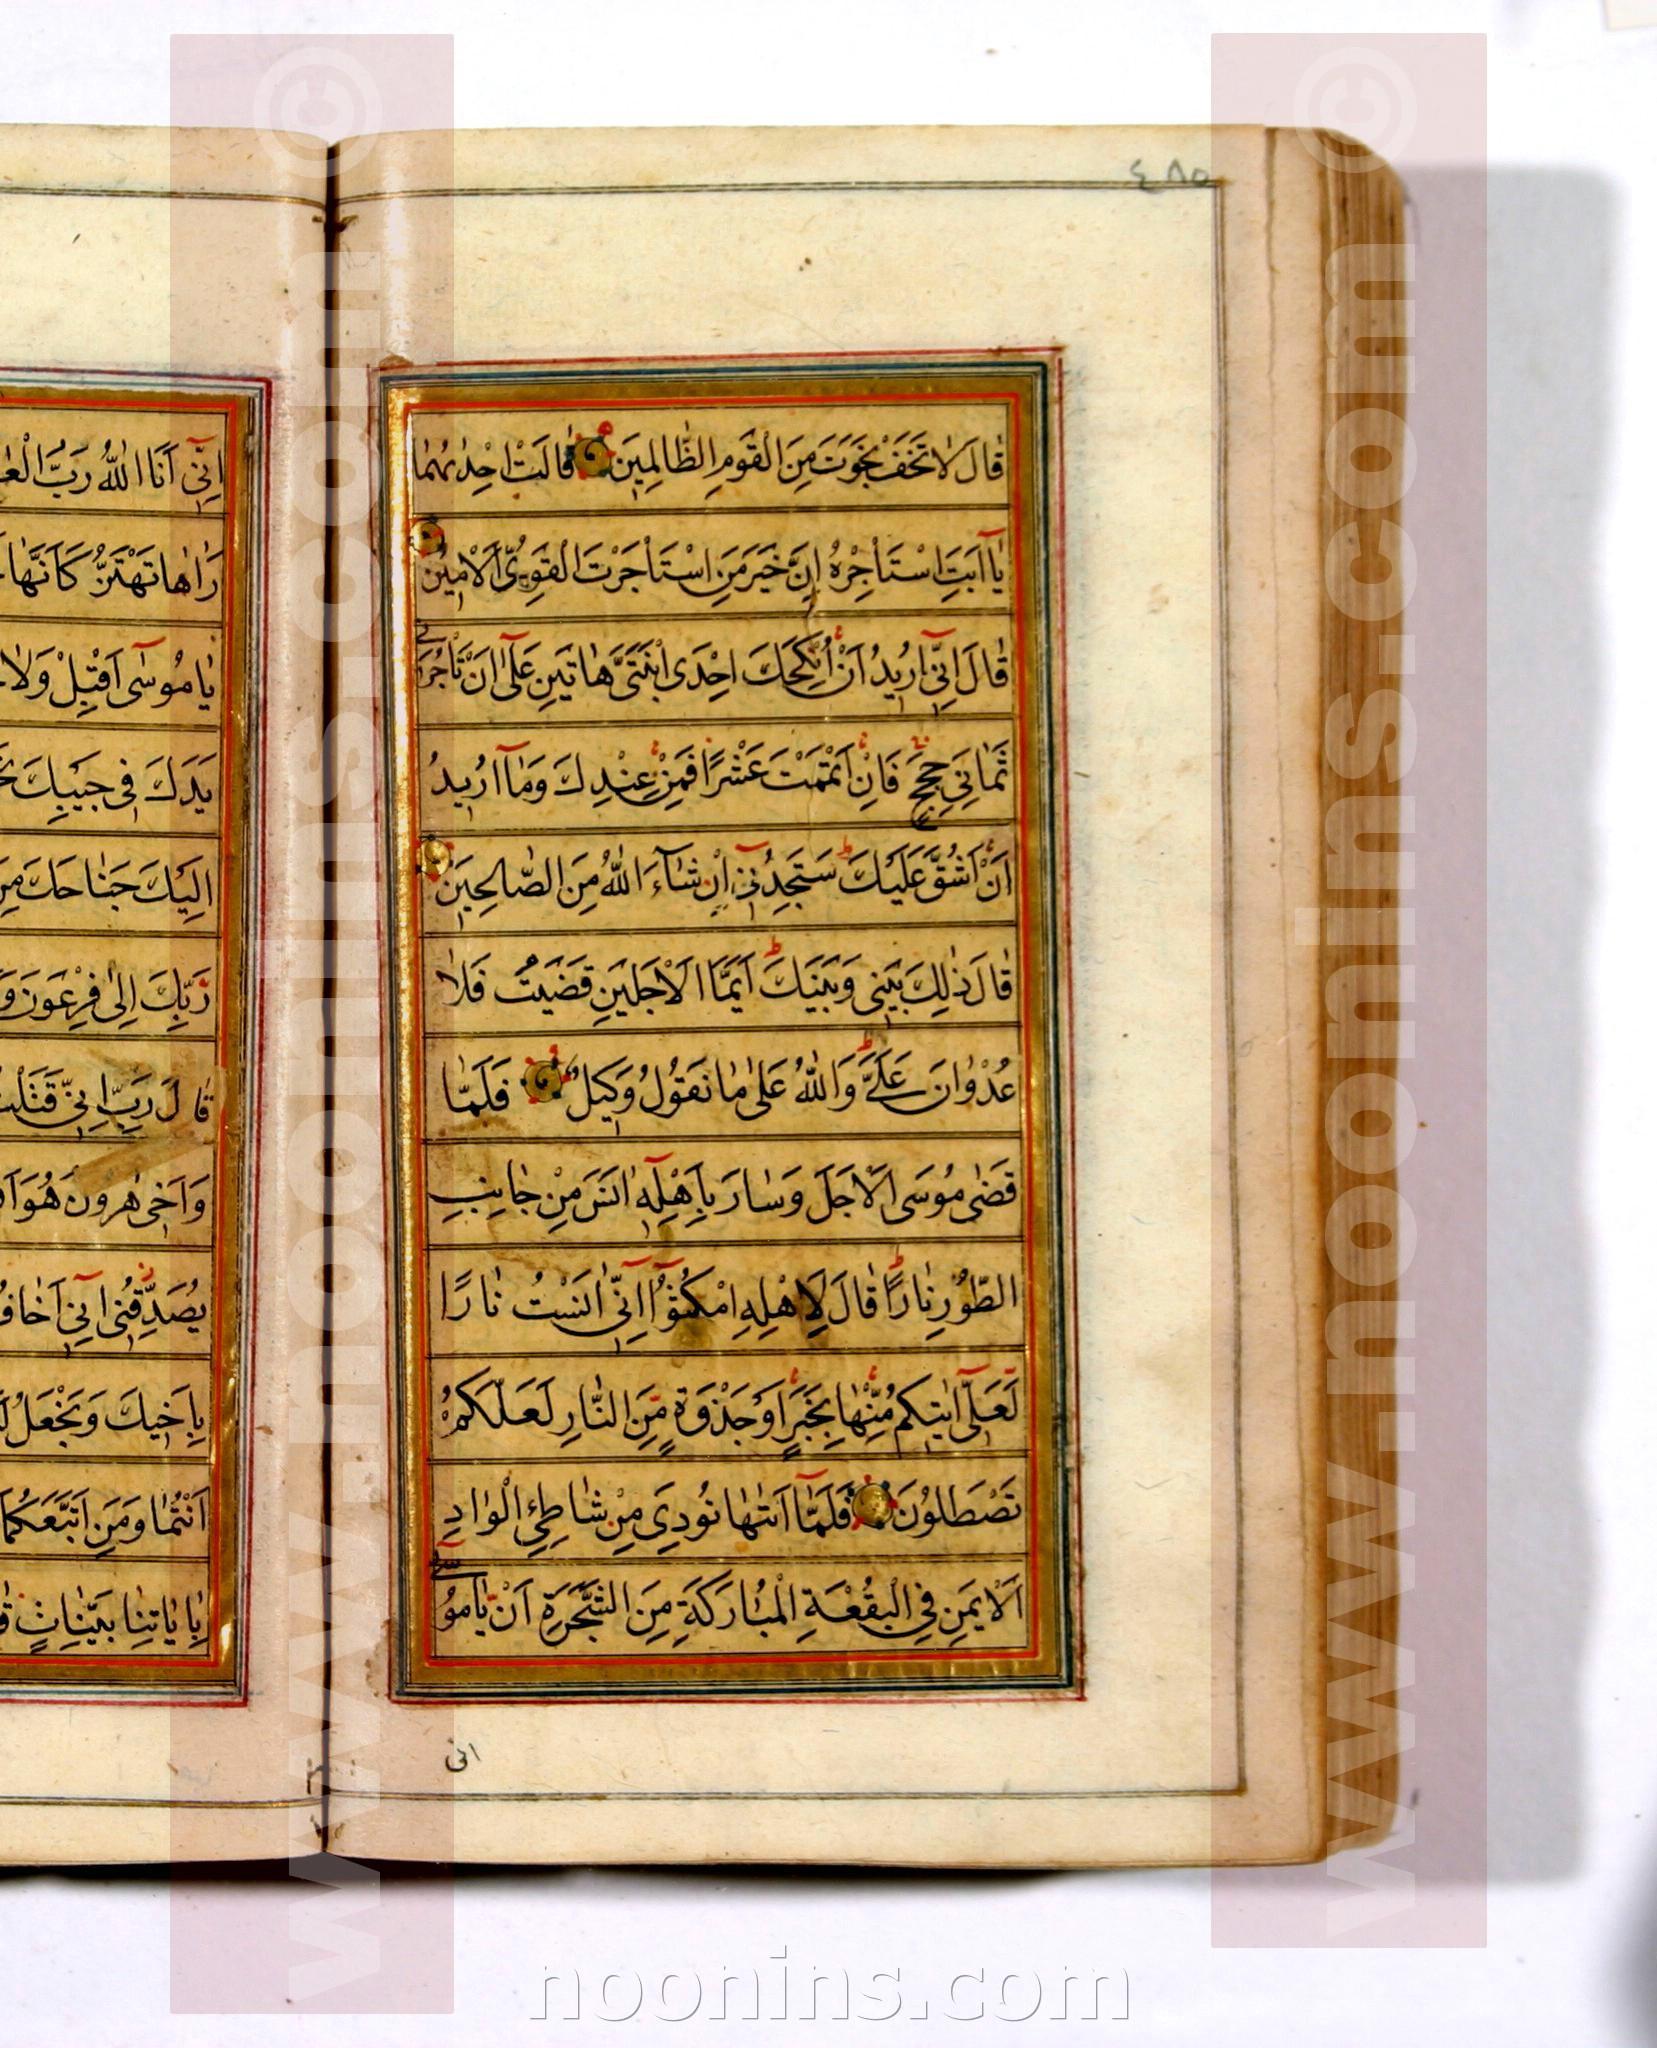 ٤٨٥
قٰالَ لٰا تَخَفْ نَجَوْتَ مِنَ الْقَوْمِ الظّٰالِمِينَ قٰالَتْ اِحْدٰىهُمٰا
يٰآ اَبَتِ اسْتَأْجِرْهُ اِنَّ خَيْرَ مَنِ اسْتَأْجَرْتَ الْقَوِىُّ الْاَمِينُ
قٰالَ اِنِّىٓ اُرِيدُ اَنْ اُنْكِحَكَ اِحْدَى ابْنَتَىَّ هٰاتَيْنِ عَلٰٓى اَنْ تَأْجُرَنِى
ثَمٰانِىَ حِجَجٍ فَاِنْ اَتْمَمْتَ عَشْرًا فَمِنْ عِنْدِكَ وَمٰآ اُرِيدُ
اَنْ اَشُقَّ عَلَيْكَ سَتَجِدُنِىٓ اِنْ شٰآءَ اللّٰهُ مِنَ الصّٰالِحِينَ
قٰالَ ذٰلِكَ بَيْنِى وَبَيْنَكَ اَيَّمَا الْاَجَلَيْنِ قَضَيْتُ فَلٰا
عُدْوٰانَ عَلَىَّ وَاللّٰهُ عَلٰى مٰا نَقُولُ وَكِيلٌ فَلَمّٰا
قَضٰى مُوسَى الْاَجَلَ وَسٰارَ بِاَهْلِهِٓ اٰنَسَ مِنْ جٰانِبِ
الطُّورِ نٰارًا قٰالَ لِاَهْلِهِ امْكُثُوٓا اِنِّىٓ اٰنَسْتُ نٰارًا
لَعَلِّىٓ اٰتِيكُمْ مِنْهٰا بِخَبَرٍ اَوْ جَذْوَةٍ مِنَ النّٰارِ لَعَلَّكُمْ
تَصْطَلُونَ فَلَمّٰآ اَتٰىهٰا نُودِىَ مِنْ شٰاطِئِ الْوٰادِ
الْاَيْمَنِ فِى الْبُقْعَةِ الْمُبٰارَكَةِ مِنَ الشَّجَرَةِ اَنْ يٰا مُوسٰٓى
انى
اِنِّىٓ اَنَا اللّٰهُ رَبُّ
رَاٰهٰا تَهْتَزُّ كَاَنَّهٰا
يٰا مُوسٰٓى اَقْبِلْ وَلٰا
يَدَكَ فِى جَيْبِكَ
اِلَيْكَ جَنٰاحَكَ مِنَ
رَبِّكَ اِلٰى فِرْعَوْنَ وَ
قٰالَ رَبِّ اِنِّى قَتَلْتُ
وَاَخِى هٰرُونُ هُوَ
يُصَدِّقُنِىٓ اِنِّىٓ اَخٰافُ
بِاَخِيكَ وَنَجْعَلُ
اَنْتُمٰا وَمَنِ اتَّبَعَكُمَا
بِاٰيٰاتِنٰا بَيِّنٰاتٍ
www.noonins.com ©
www.noonins.com ©
noonins.com